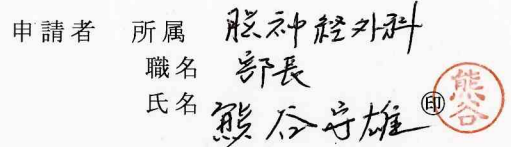 申請者 所属 脳神経外科
職名 部長
氏名 熊谷守雄 ㊞ 熊谷